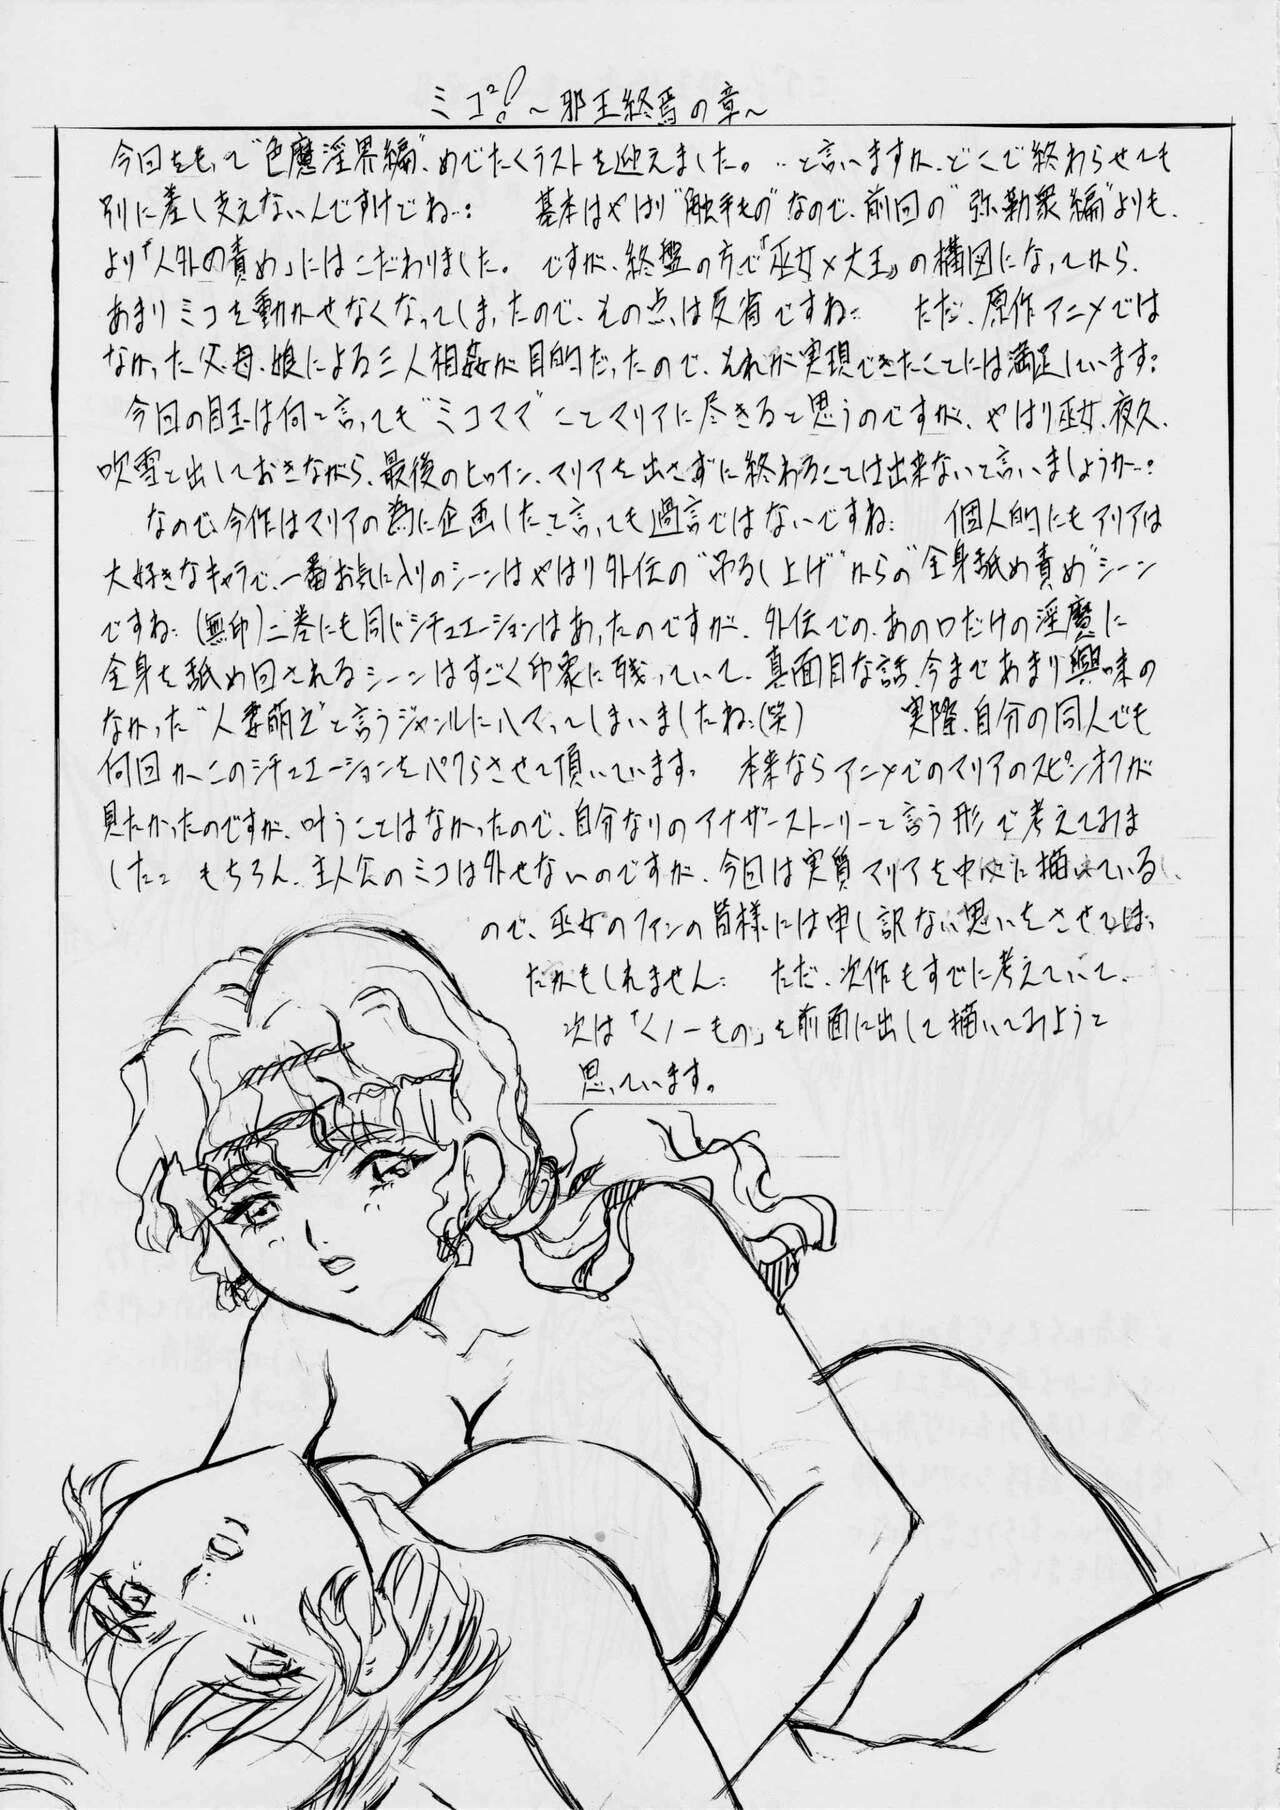 ミコ²! ～邪王終焉の章～
今回をもって"色魔淫界編"、めでたくラストを迎えました。…と言いますか、どこで終わらせても
別に差し支えないんですけどね…: 基本はやはり"触手もの"なので、前回の"弥勒衆編"よりも、
より「人外の責め」にはこだわりました。 ですが、終盤の方で『巫女×大王』の構図になってから、
あまりミコを動かせなくなってしまったので、その点は反省ですね: ただ、原作アニメでは
なかった父、母、娘による三人相姦が目的だったので、それが実現できたことには満足しています:
今回の目玉は何と言っても"ミコママ"ことマリアに尽きると思うのですが、やはり巫女、夜久、
吹雪と出しておきながら、最後のヒロイン、マリアを出さずに終わることは出来ないと言いましょうか…:
なので、今作はマリアの為に企画したと言っても過言ではないですね: 個人的にもマリアは
大好きなキャラで、一番お気に入りのシーンはやはり外伝の"吊るし上げ"からの"全身舐め責め"シーン
ですね: (無印)二巻にも同じシチュエーションはあったのですが、外伝での、あの口だけの淫魔に
全身を舐め回されるシーンはすごく印象に残っていて、真面目な話、今まであまり興味の
なかった"人妻萌え"と言うジャンルにハマってしまいましたね:(笑) 実際、自分の同人でも
何回か、このシチュエーションをパクらさせて頂いています。 本来ならアニメでのマリアのスピンオフが
見たかったのですが、叶うことはなかったので、自分なりのアナザーストーリーと言う形で考えてみま
した: もちろん、主人公のミコは外せないのですが、今回は実質マリアを中心に描いている
ので、巫女のファンの皆様には申し訳ない思いをさせてしまっ
たかもしれません: ただ、次作もすでに考えていて、
次は「くノ一もの」を前面に出して描いてみようと
思っています。